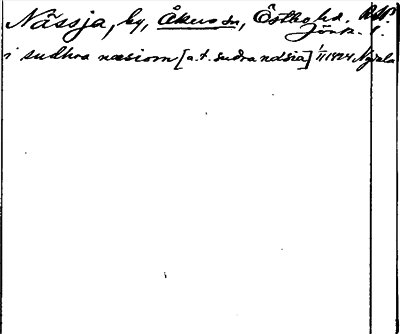 Nässja, by, Åkers sn, Östbo hd.
Jönk. l.
i sudhra næsiom [a.t. sudra näsia] 1/11 1424 Nydala